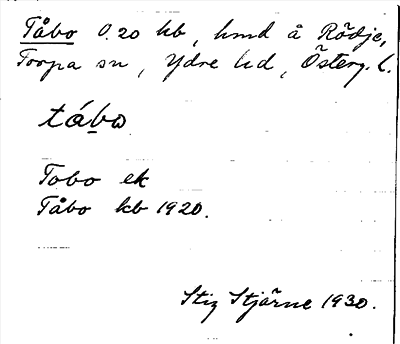 Tåbo 0.20 kb, hmd å Rödje,
Torpa sn, Ydre hd, Österg. l.
tábo
Tobo ek
Tåbo kb 1920.
Stig Stjärne 1930.